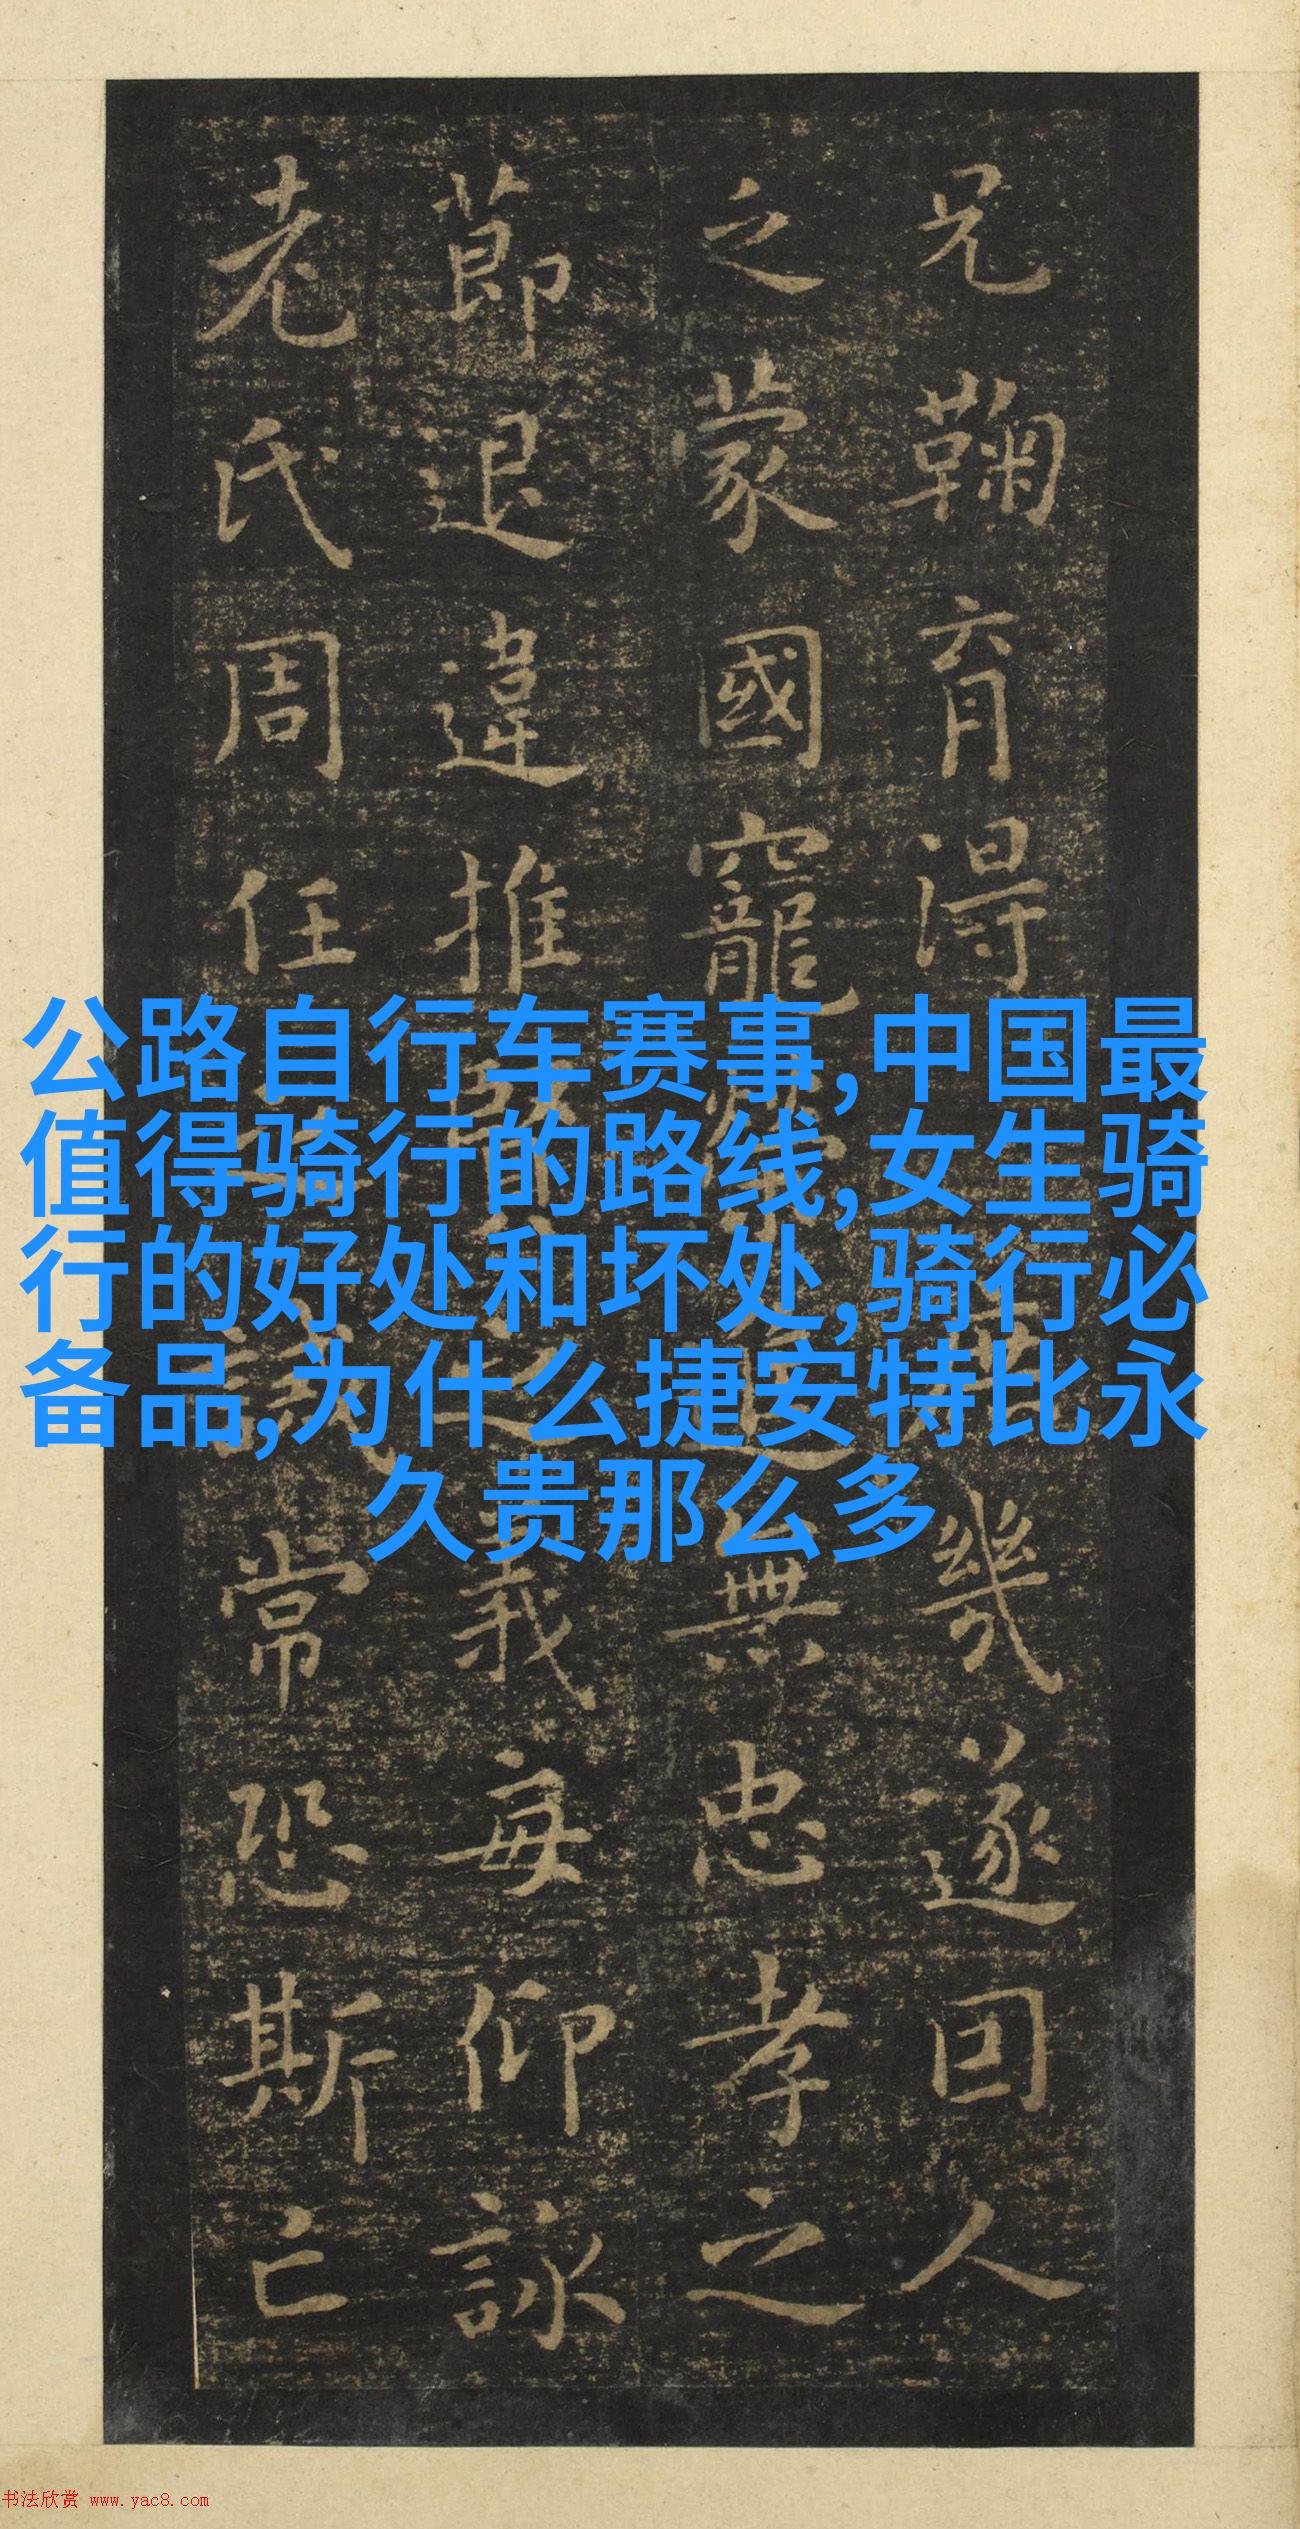 兄鞠育得
幾遂回人
之蒙國寵
無忠孝之
莭退違推
之義每仰詠
老氏周任
誡常恐斯亡
公路自行车赛事,中国最
值得骑行的路线,女生骑
行的好处和坏处,骑行必
备品,为什么捷安特比永
久贵那么多
书法欣赏 www.yac8.com